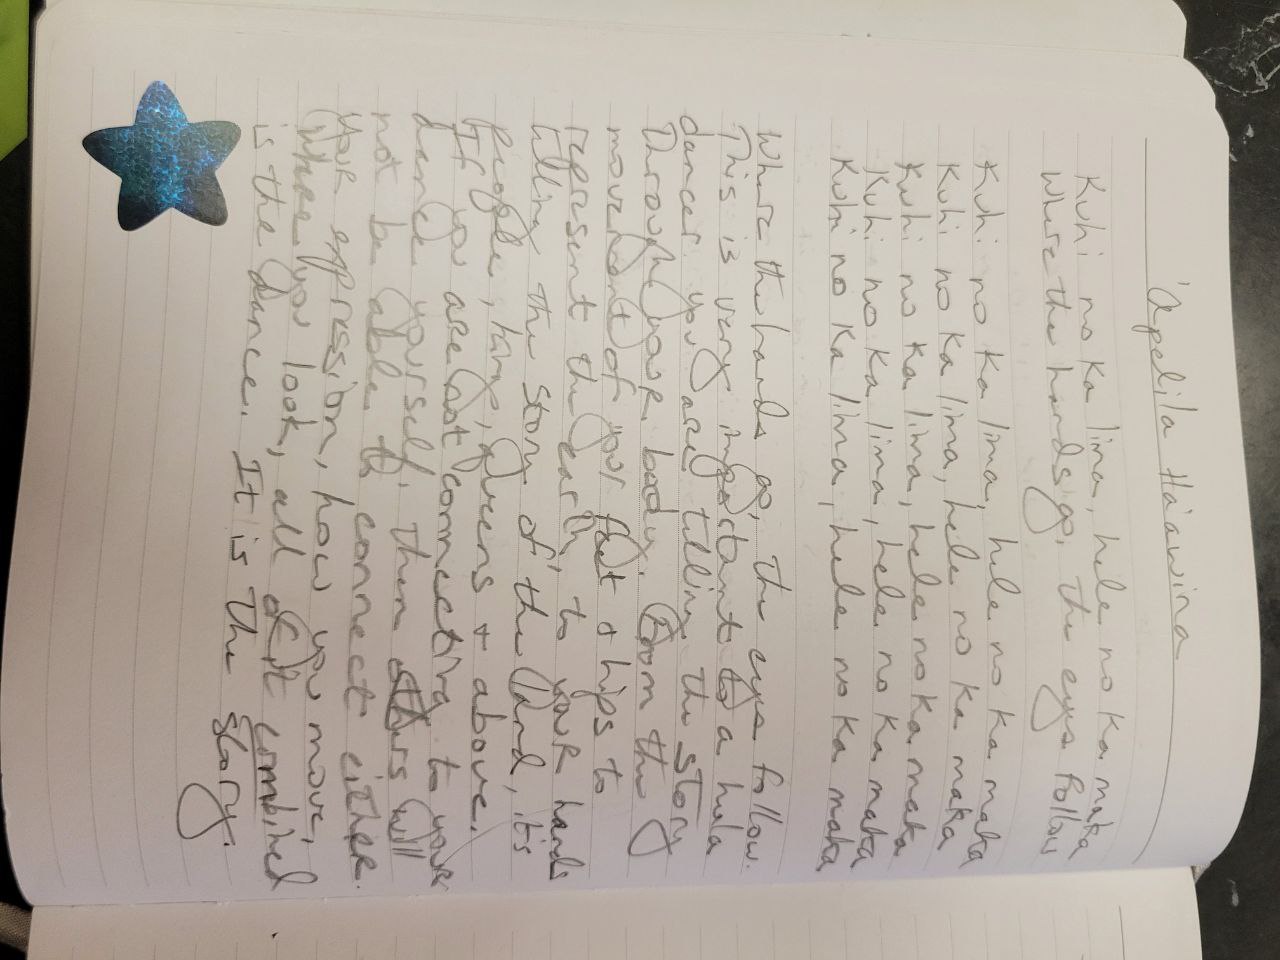 'Apelila Ha'awina
Kuhi no ka lima, hele no ka maka
Where the hands go, the eyes follow
Kuhi no ka lima, hele no ka maka
Kuhi no ka lima, hele no ka maka
Kuhi no ka lima, hele no ka maka
Kuhi no ka lima, hele no ka maka
Kuhi no ka lima, hele no ka maka
Where the hands go, the eyes follow.
This is very important to a hula
dancer. you are telling the story
Through your body. From the
movement of your feet & hips to
represent the earth, to your hands
telling the story of the land, its
people, kings, queens & above.
If you are not connecting to your
dance yourself, then others will
not be able to connect either.
Your expression, how you move,
where you look, all of it combined
is the dance. It is The story.